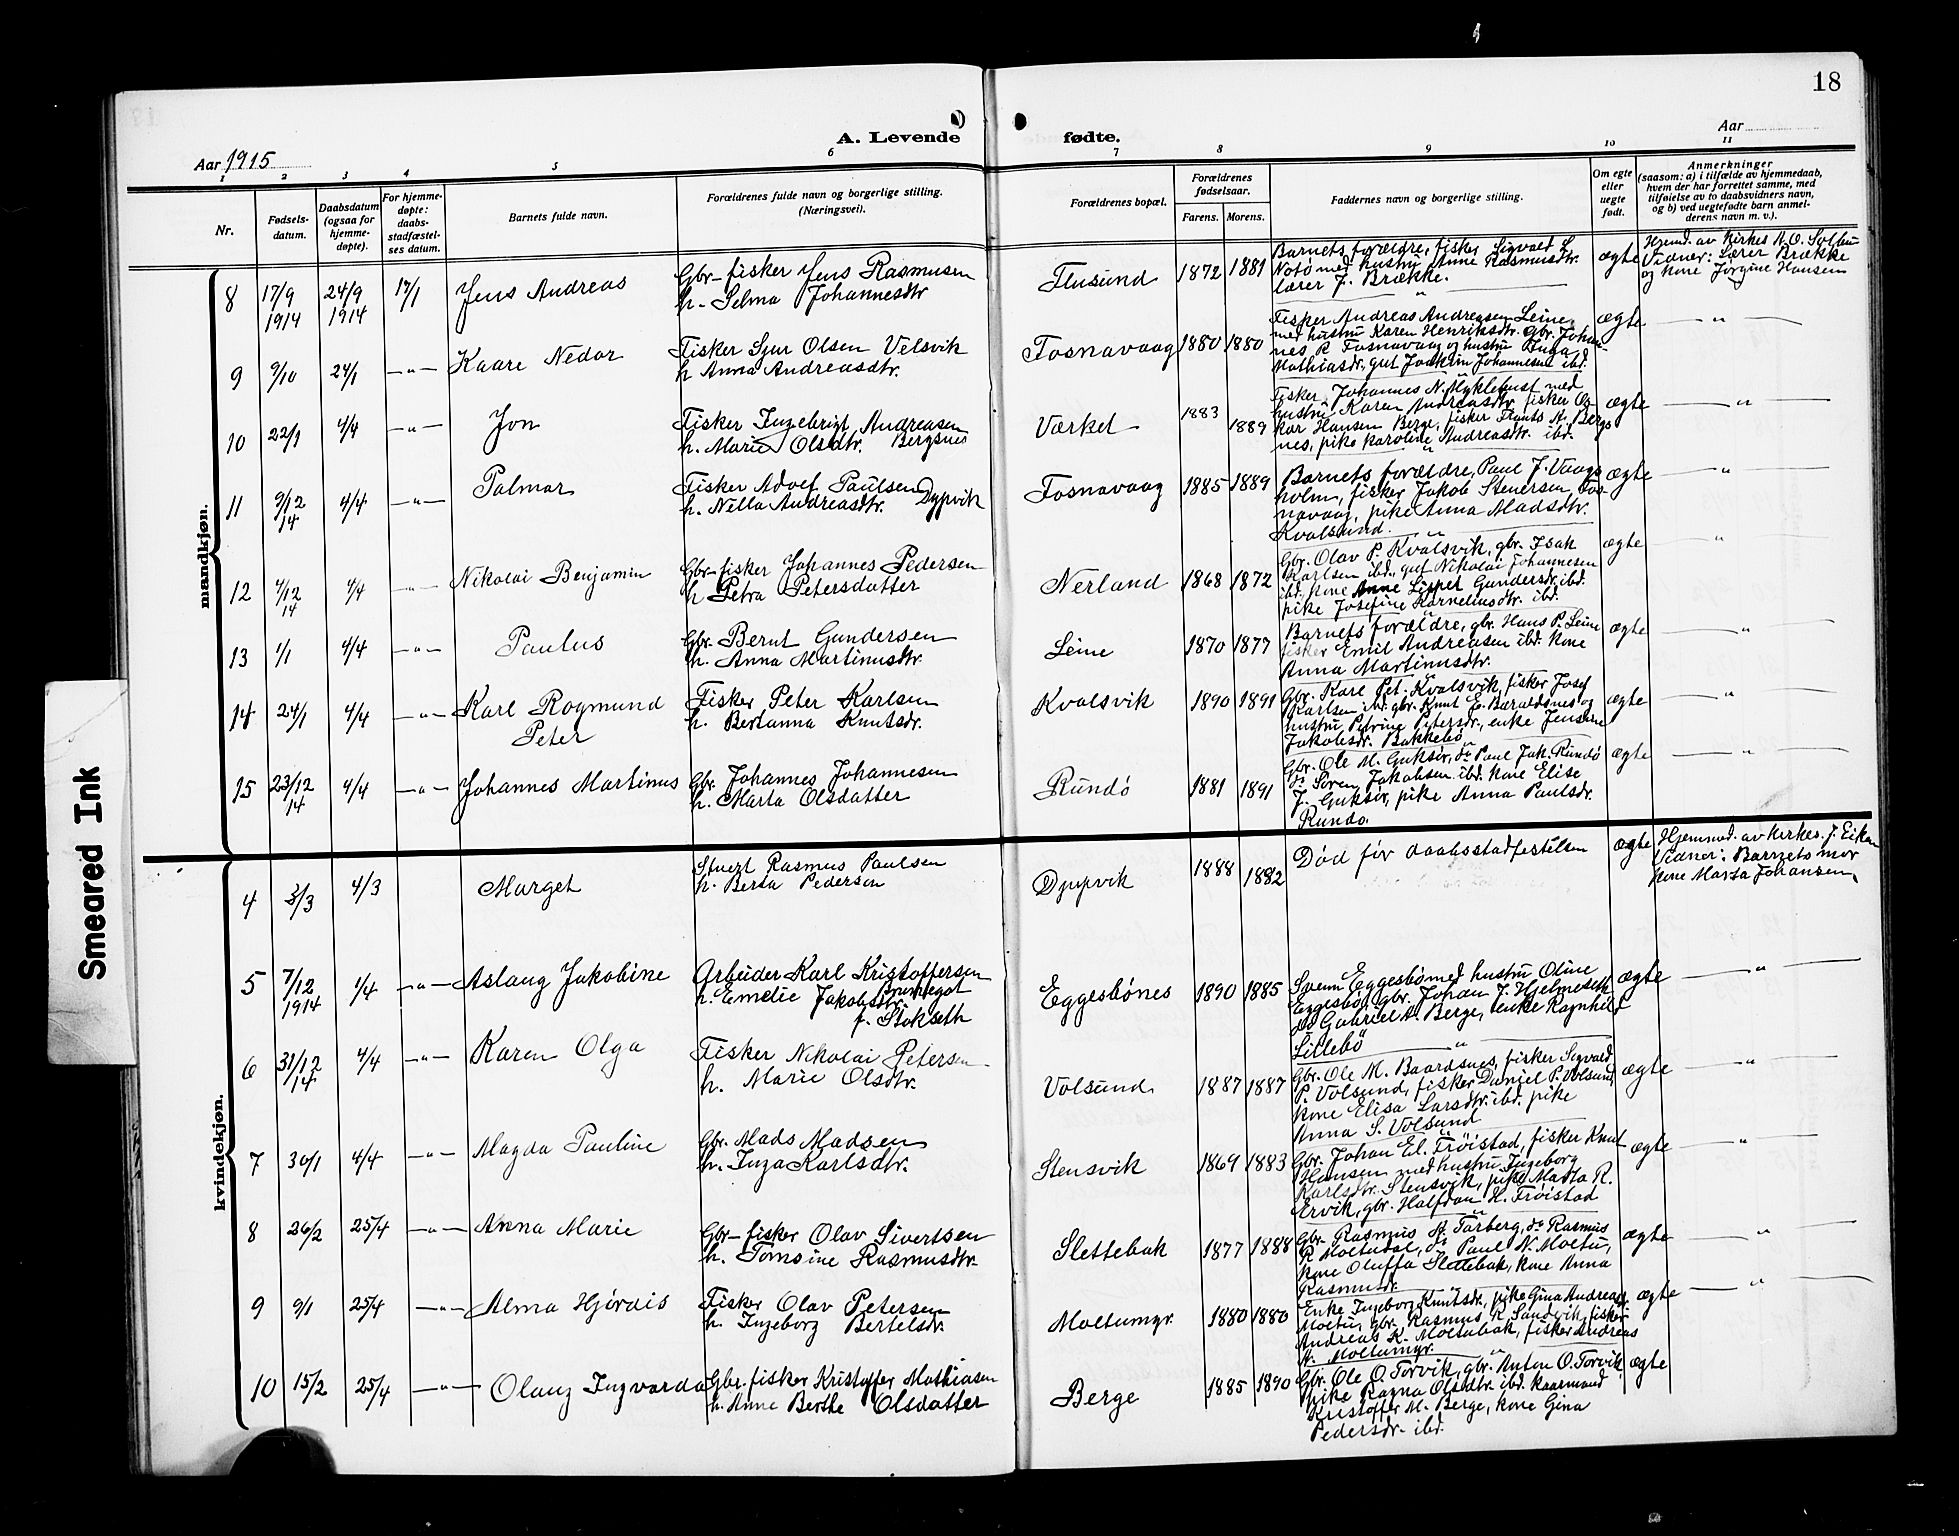 18
A. Levende
fødte.
Aar 1915
Aar
1 2 3 4 5 6 7 8 9 10 11
Nr.
Fødsels-
datum.
Daabsdatum
(ogsaa for
hjemme-
døpte).
For hjemme-
døpte:
daabs-
stadfæstel-
ses datum.
Barnets fulde navn.
Forældrenes fulde navn og borgerlige stilling.
(Næringsvei).
Forældrenes bopæl.
Forældrenes
fødselsaar.
Farens. Morens.
Faddernes navn og borgerlige stilling.
Om egte
eller
uegte
født.
Anmerkninger
(saasom: a) i tilfælde av hjemmedaab,
hvem der har forrettet samme, med
tilføielse av to daabsvidners navn,
og b) ved uegtefødte barn anmel-
derens navn m. v.).
mandkjøn.
8 17/9 1914 24/9 1914 17/1 Jens Andreas
Gbr-fisker Jens Rasmusen
h. Selma Johannesdtr
Flusund 1872 1881
Barnets forældre, fisker Sigvald L.
Notø med hustru Anne Rasmusdtr.
lærer J. Brække.
ægte
Hjemd. av kirkes. A. O.
Vidner: Lærer Brække
og kone Jørgine Hansen
9 9/10 24/1 -"- Kaare Nedor
Fisker Sjur Olsen Velsvik
h Anna Andreasdtr.
Fosnavaag 1880 1880
Fisker Andreas Andreasen Leine,
med hustru Karen Henriksdtr. gbr. Johan-
nes P. Fosnavaag og hustru Inga
Mathiasdr., gut Joakim Johannesen ibd.
ægte "
10 22/1 4/4 -"- Jon
Fisker Ingebrigt Andreasen
h. Marie Olsdtr. Bergsnes
Værket 1883 1889
Fisker Johannes N. Myklebust med
hustru Karen Andreasdtr. fisker Os-
kar Hansen Berge, fisker Frants A. Bergs-
nes, pike Karoline Andreasdtr. ibd.
ægte "
11 9/12 14 4/4 -"- Palmar
Fisker Adolf Paulsen Dypvik
h. Nella Andreasdtr.
Fosnavaag 1885 1889
Barnets forældre, Paul J. Vaags-
holm, fisker Jakob Stenersen Fos-
navaag, pike Anna Madsdtr.
Kvalsund.
ægte "
12 4/12 14 4/4 -"- Nikolai Benjamin
Gbr-fisker Johannes Pedersen
h Petra Petersdatter
Nerland 1868 1872
Gbr. Olav P. Kvalsvik, gbr. Isak
Karlsen ibd., gut Nikolai Johannesen
ibd., kone Anne Lisper Gundersdr. ibd.
pike Josefine Korneliusdtr. ibd.
ægte "
13 1/1 4/4 -"- Paulus
Gbr. Bernt Gundersen
h. Anna Martinusdtr.
Leine 1870 1877
Barnets forældre, gbr. Hans P. Leine
fisker Emil Andreasen ibd. kone
Anna Martinusdtr.
ægte "
14 24/1 4/4 -"- Karl Rogmund
Peter
Fisker Peter Karlsen
h. Bertanna Knutsdr.
Kvalsvik 1890 1891
Gbr. Karl Pet. Kvalsvik, fisker Josef
Karlsen ibd. gbr. Knut E. Baraldsnes og
hustru Petrine Petersdr., enke Jensine
Jakobsdr. Bakkebø
ægte "
15 23/12 14 4/4 -"- Johannes Martinus
Gbr. Johannes Johannesen
h. Marta Olsdatter
Rundø 1881 1891
Gbr. Ole M. Guksør, do Paul Jak. Rundø
do Søren Jakobsen ibd. kone Elise
J. Guksør, pike Anna Paulsdr.
Rundø.
ægte "
kvindekjøn.
4 3/3 4/3 Marget
Stuert Rasmus Paulsen
h. Berta Pedersen
Dypvik 1888 1882
Død før daabsstadfestelsen
ægte
Hjemmed. av kirkes. J. Eiken
Vidner: Barnets mor
kone Marta Johansen.
5 7/12 1914 1/4 -"- Aslaug Jakobine
Arbeider Karl Kristoffersen
h. Emelie Jakobsdtr. Brunegot
f. Stokseth
Eggesbønes 1890 1885
Svenn Eggesbø med hustru Oline
Eggesbø, gbr. Johan J. Hjelmeseth
do Gabriel A. Berge, enke Ragnhild
Lillebø
ægte "
6 31/12 14 4/4 -"- Karen Olga
Fisker Nikolai Petersen
h. Marie Olsdtr.
Volsund 1887 1887
Gbr. Ole M. Baardsnes, fisker Sigvald
P. Volsund, fisker Daniel P. Volsund,
kone Elisa Larsdtr. ibd. pike
Anna S. Volsund
ægte "
7 30/1 4/4 -"- Magda Pauline
Gbr. Mads Madsen
h. Inga Karlsdtr.
Stensvik 1869 1883
Gbr. Johan El. Frøistad, fisker Knut
Hansen med hustru Ingeborg
Karlsdtr. Stensvik, pike Marta R.
Ervik, gbr. Halfdan H. Frøistad
ægte "
8 26/2 25/4 -"- Anna Marie
Gbr-fisker Olav Sivertsen
h. Tomsine Rasmusdtr.
Slettebak 1877 1888
Gbr. Rasmus A. Tarberg, do Rasmus
R. Moltudal, do Paul N. Moltu,
kone Oluffa Slettebak, kone Anna
Rasmusdr.
ægte "
9 9/1 25/4 -"- Alma Hjørdis
Fisker Olav Petersen
h. Ingeborg Bertelsdr.
Moltumyr. 1880 1880
Enke Ingeborg Knutsdr., pike Gina Andreasdr.
Moltu, gbr. Rasmus R. Sandvik, fisker
Andreas K. Moltubak, fisker Andreas
A. Moltumyr.
ægte "
10 15/2 25/4 -"- Olaug Ingvarda
Gbr. fisker Kristoffer Mathiasen
h. Anne Berthe Olsdatter
Berge 1885 1890
Gbr. Ole O. Torvik, gbr. Anton O. Torvik
pike Ragna Olsdtr. ibd. kaarmand
Kristoffer M. Berge, kone Gina
Pedersdr. ibd.
ægte
Smeared Ink